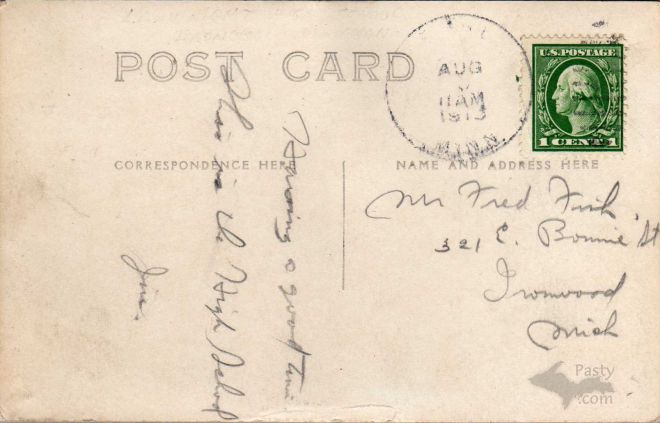 POST CARD
AUG
11 AM
1913
MINN.
U.S. POSTAGE
1 CENT 1
CORRESPONDENCE HERE
NAME AND ADDRESS HERE
Having a good time
This is the High School
Jim.
Mr Fred Fish,
321 E. Bonnie St
Ironwood
Mich
Pasty
.com